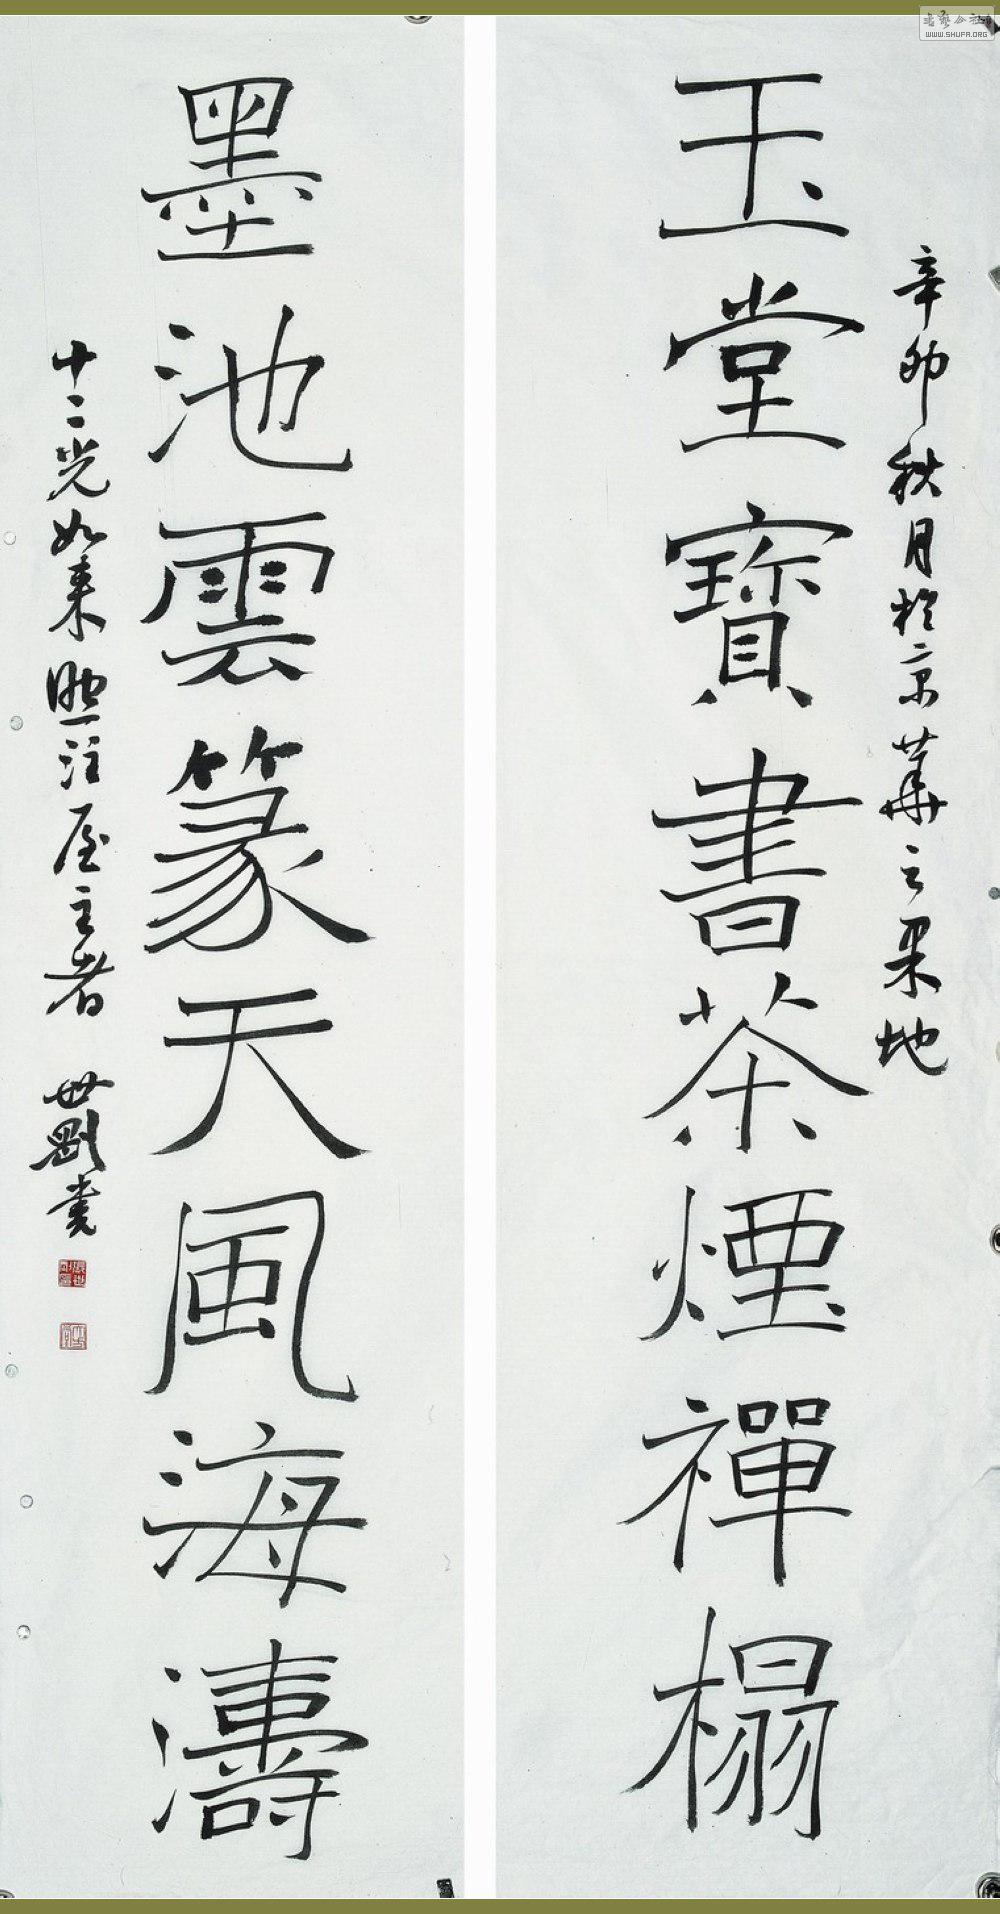 辛卯秋月於京華之果地
玉堂寶書茶煙禪榻
墨池雲篆天風海濤
十二光如来照注屋主者 世剛書
WWW.SHUFA.ORG